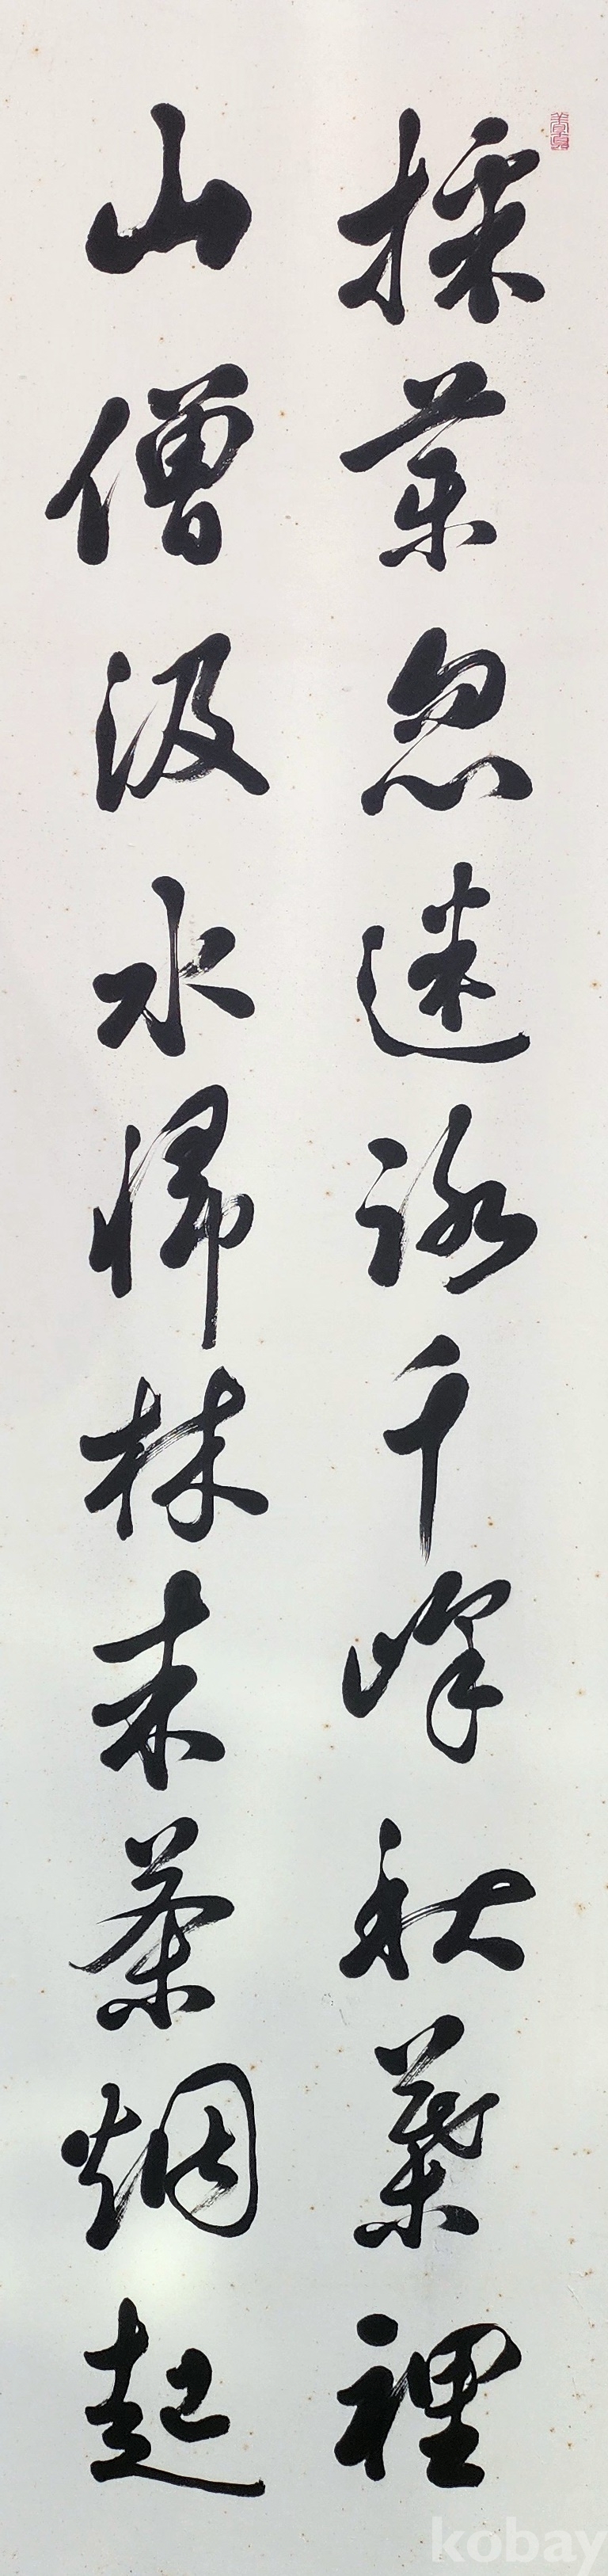 採藥忽迷路千峰秋葉裡
山僧汲水歸林末茶烟起
kobay